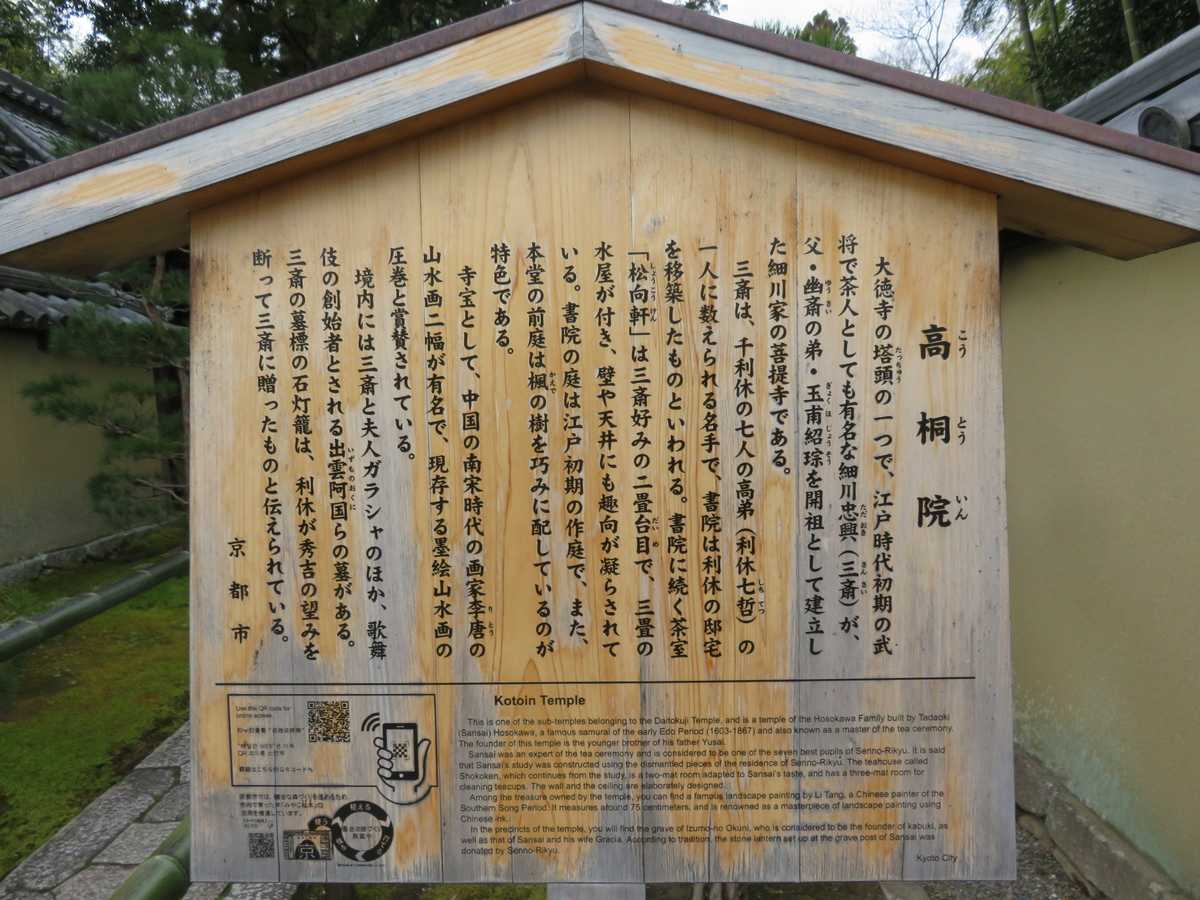 高桐院
こうとういん
大徳寺の塔頭の一つで、江戸時代初期の武
将で茶人としても有名な細川忠興（三斎）が、
父・幽斎の弟・玉甫紹琮を開祖として建立し
た細川家の菩提寺である。
三斎は、千利休の七人の高弟（利休七哲）の
一人に数えられる名手で、書院は利休の邸宅
を移築したものといわれる。書院に続く茶室
「松向軒」は三斎好みの二畳台目で、三畳の
水屋が付き、壁や天井にも趣向が凝らされて
いる。書院の庭は江戸初期の作庭で、また、
本堂の前庭は楓の樹を巧みに配しているのが
特色である。
寺宝として、中国の南宋時代の画家李唐の
山水画二幅が有名で、現存する墨絵山水画の
圧巻と賞賛されている。
境内には三斎と夫人ガラシャのほか、歌舞
伎の創始者とされる出雲阿国らの墓がある。
三斎の墓標の石灯籠は、利休が秀吉の望みを
断って三斎に贈ったものと伝えられている。
京都市
Kotoin Temple
This is one of the sub-temples belonging to the Daitokuji Temple, and is a temple of the Hosokawa Family built by Tadaoki
(Sansai) Hosokawa, a famous samurai of the early Edo Period (1603-1867) and also known as a master of the tea ceremony.
The founder of this temple is the younger brother of his father Yusai.
Sansai was an expert of the tea ceremony and is considered to be one of the seven best pupils of Senno-Rikyu. It is said
that Sansai's study was constructed using the dismantled pieces of the residence of Senno-Rikyu. The teahouse called
Shokoken, which continues from the study, is a two-mat room adapted to Sansai's taste, and has a three-mat room for
cleaning teacups. The wall and the ceiling are elaborately designed.
Among the treasure owned by the temple, you can find a famous landscape painting by Li Tang, a Chinese painter of the
Southern Song Period. It measures around 75 centimeters, and is renowned as a masterpiece of landscape painting using
Chinese ink.
In the precincts of the temple, you will find the grave of Izumo-no Okuni, who is considered to be the founder of kabuki, as
well as that of Sansai and his wife Gracia. According to tradition, the stone lantern set up at the grave post of Sansai was
donated by Senno-Rikyu.
Kyoto City
Use this QR code for
online access.
詳細はこちらのQRコードへ
京都市では、健全な森づくりを進めるため、
市内で育った木「みやこ杣木」の
活用を推進しています。
植える
使う